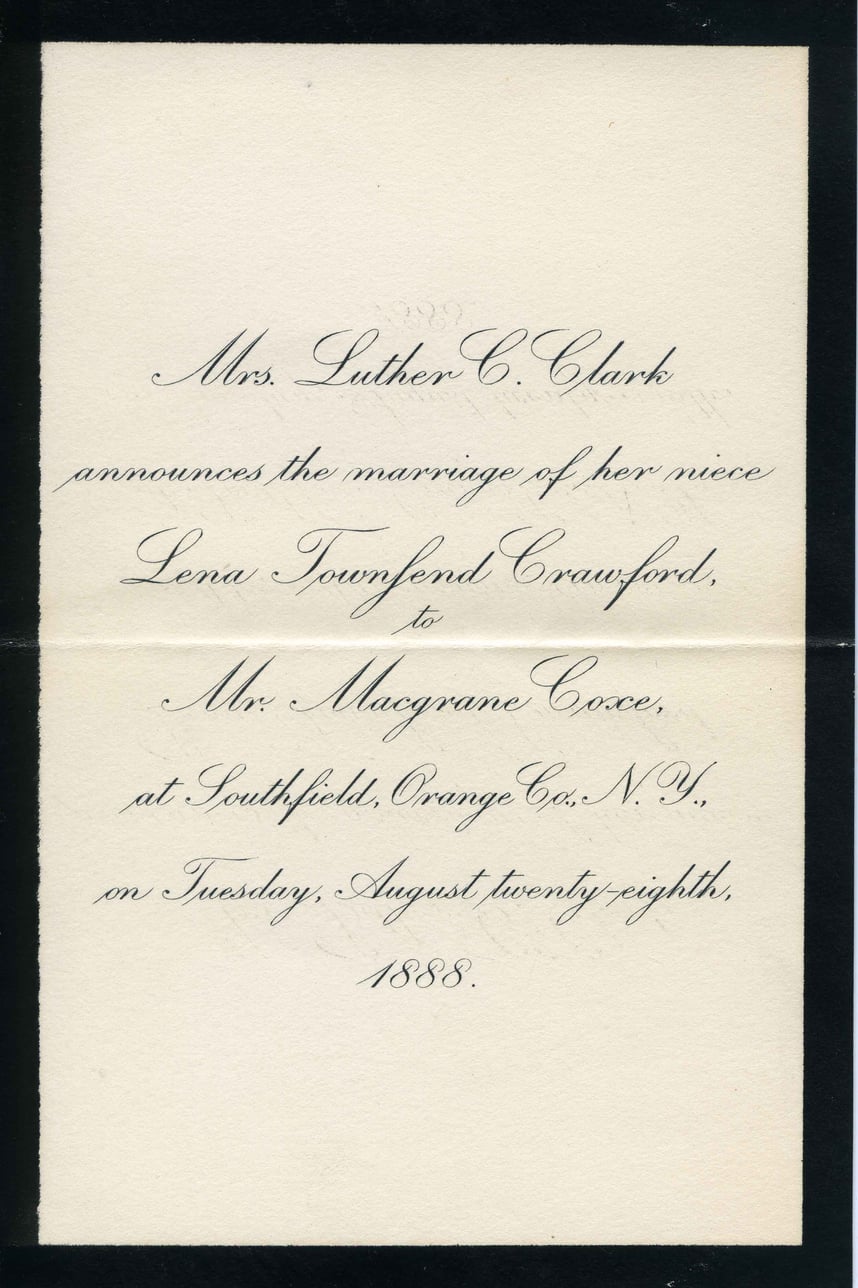 Mrs. Luther C. Clark
announces the marriage of her niece
Lena Townsend Crawford,
to
Mr. Macgrane Coxe,
at Southfield, Orange Co., N. Y.,
on Tuesday, August twenty-eighth,
1888.